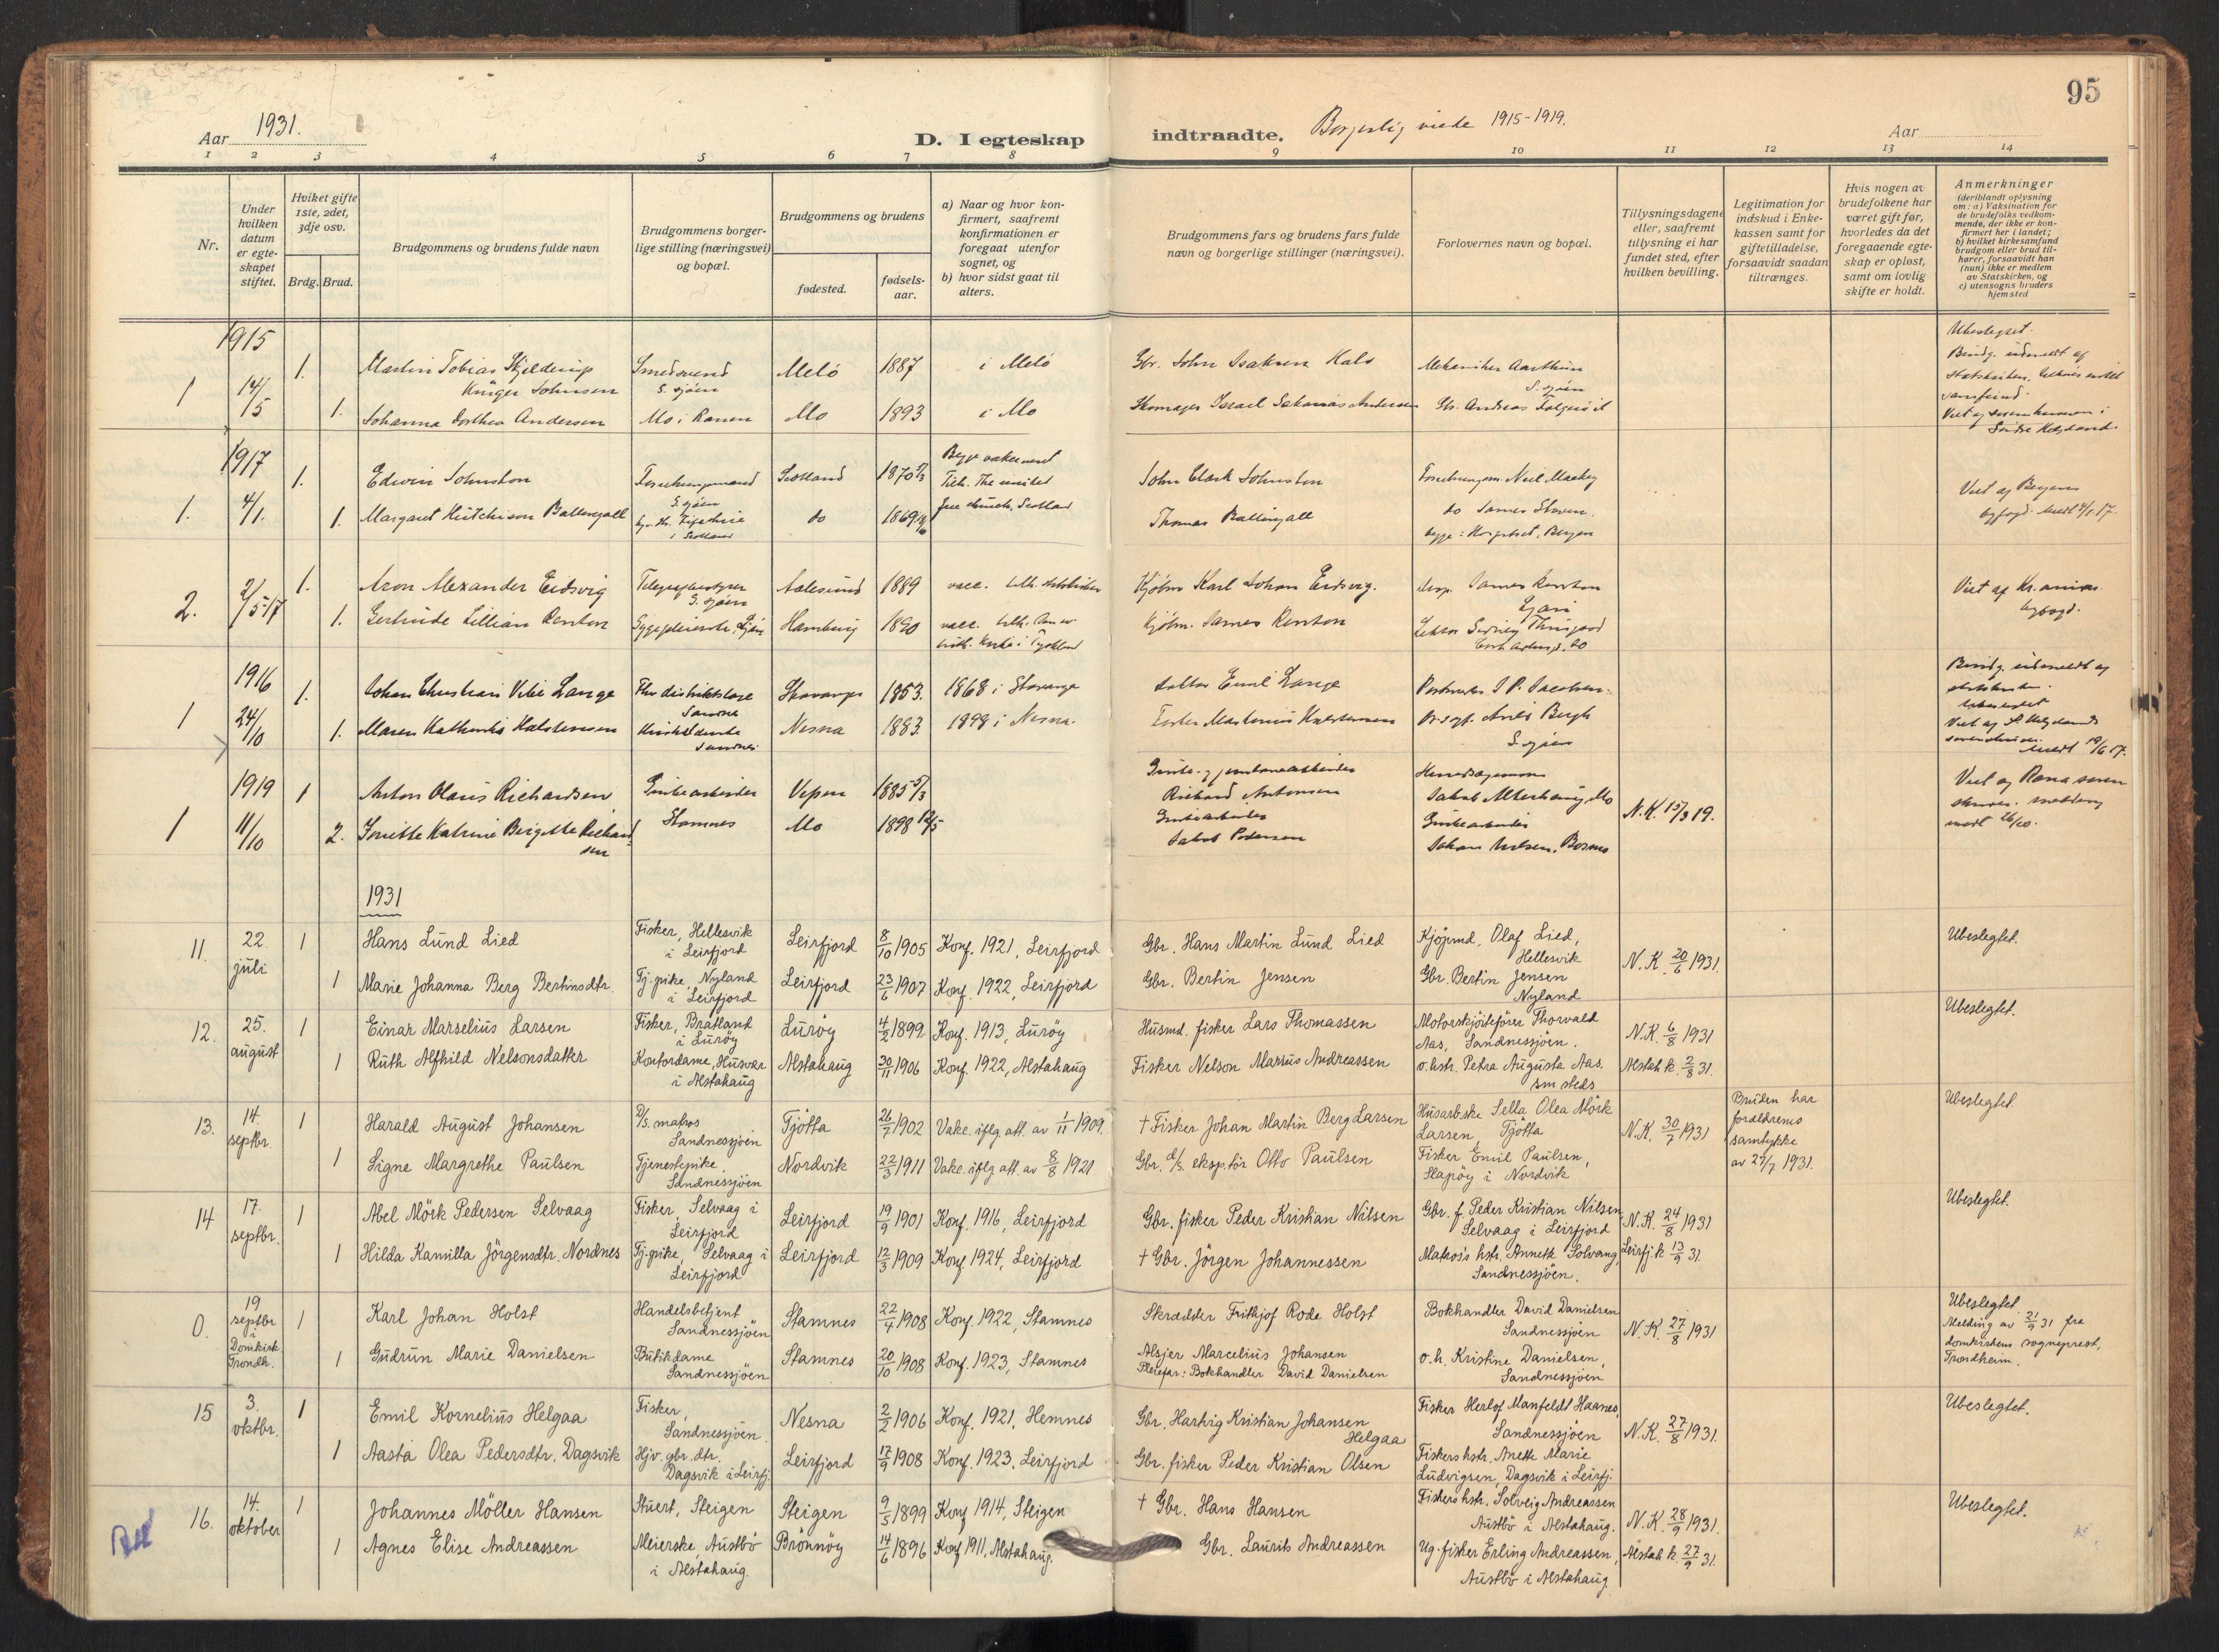 95
Aar 1931.
D. I egteskap indtraadte.
Borgerlig viede 1915-1919.
Aar
1 2 3 4 5 6 7 8 9 10 11 12 13 14
Nr.
Under hvilken datum er egteskapet stiftet.
Hvilket gifte 1ste, 2det, 3dje osv.
Brdg. Brud.
Brudgommens og brudens fulde navn
Brudgommens borgerlige stilling (næringsvei) og bopæl.
Brudgommens og brudens
fødested.
fødselsaar.
a) Naar og hvor konfirmert, saafremt konfirmationen er foregaat utenfor sognet, og
b) hvor sidst gaat til alters.
Brudgommens fars og brudens fars fulde navn og borgerlige stillinger (næringsvei).
Forlovernes navn og bopæl.
Tillysningsdagene eller, saafremt tillysning ei har fundet sted, efter hvilken bevilling.
Legitimation for indskud i Enkekassen samt for giftetilladelse, forsaavidt saadan tiltrænges.
Hvis nogen av brudefolkene har været gift før, hvorledes da det foregaaende egteskap er opløst, samt om lovlig skifte er holdt.
Anmerkninger
(deriblandt oplysning om: a) Vaksination for de brudefolks vedkommende, der ikke er konfirmert her i landet; b) hvilket kirkesamfund brudgom eller brud tilhører, forsaavidt han (hun) ikke er medlem av Statskirken, og c) utensogns bruders hjemsted
1915
1 14/5 1. Martin Tobias Skjelderup Krüger Johnsen Smedsvend S.sjøen Melö 1887 i Melö Gbr. John Isaksen Kals Mekaniker S.sjøen Ubeslegtet.
1. Johanna Dorthea Andersen Mo i Ranen Mo 1893 i Mo Skomager Israel Andersen Gbr. Andreas
1917
1. 4/1. 1. Edwin Johnston S.sjøen Scotland 1870 John Clark Johnston Neil Mackey Viet af Bergens byfogd.
1. Margaret Hutchison Ballingall i Scotland do 1869 The united free church, Scotland Thomas Ballingall do James Bergen
2. 2/5-17 1. Aron Alexander Eidsvig S.sjøen Aalesund 1889 vacc. Kjøbm Karl Johan Eidsvig. James Renton Viet af Kr.anias byfogd.
1. Gertrude Lillian Renton Sygepleierske, Hamburg 1890 vacc. Kjøbm. James Renton
1916
1 24/10 1. Johan Christian Vibe Lange Stavanger 1853. 1868 i Stavanger Emil Lange Jacobsen
1. Maren Kathinka Halstensen Nesna 1883 1898 i Nesna. Martinus Halstensen Bergh S.sjøen
1919
1 11/10 1 Anton Olaus Richardsen Grubearbeider Stamnes Vefsn 1885 5/3 Richard Antonsen Jakob Alterhaug, Mo N.K. 15/3 19.
2. Katrine Birgitte Richardsen Mo 1898 12/5 Grubearbeider Jakob Pedersen Grubearbeider Johan Nilsen.
1931
11. 22 juli 1 Hans Lund Lied Fisker, Hellesvik i Leirfjord Leirfjord 8/10 1905 Konf. 1921, Leirfjord Gbr. Hans Martin Lund Lied Kjöpmd. Olaf Lied, Hellesvik N.K. 20/6 1931. Ubeslegtet.
1 Marie Johanna Berg Bertinsdtr. Tj.pike, Nyland i Leirfjord Leirfjord 23/6 1907 Konf. 1922, Leirfjord Gbr. Bertin Jensen Gbr. Bertin Jensen Nyland
12. 25. august 1 Einar Marselius Larsen Fisker, Bratland i Luröy Luröy 4/2 1899. Konf. 1913, Luröy Husmd. fisker Lars Thomassen Motorskjöitefører Thorvald Aas, Sandnessjöen. N.K. 6/8 1931 Ubeslegtet.
1 Ruth Alfhild Nelsonsdatter Kontordame, Husvær i Alstahaug Alstahaug 30/11 1906 Konf. 1922, Alstahaug Fisker Nelson Marius Andreassen o.hstr. Petra Augusta Aas. sm steds Alstah k. 2/8 31.
13. 14. septbr. 1 Harald August Johansen D/s. matros Sandnessjöen Tjötta 26/7 1902 Vakc. iflg att. av 1/11 1909. † Fisker Johan Martin Berg Larsen Husarb.ske Sella Olea Mörk Larsen, Tjötta N.K. 30/7 1931 Bruden har forældrenes samtykke av 27/7 1931. Ubeslegtet.
1 Signe Margrethe Paulsen Tjenestepike, Sandnessjöen Nordvik 22/3 1911 Vakc. iflg att. av 8/8 1921 Gbr. d/s. eksp.tör Otto Paulsen Fisker Emil Paulsen, Slapöy i Nordvik
14 17. septbr. 1 Abel Mörk Pedersen Selvaag Fisker, Selvaag i Leirfjord Leirfjord 19/9 1901 Konf. 1916, Leirfjord Gbr. fisker Peder Kristian Nilsen Gbr. f. Peder Kristian Nilsen, Selvaag i Leirfjord N.K. 24/8 1931 Ubeslegtet.
1 Hilda Kamilla Jörgensdtr. Nordnes Tj.pike, Selvaag i Leirfjord Leirfjord 12/3 1909 Konf 1924, Leirfjord † Gbr. Jörgen Johannessen Matros's hstr. Annette Solvang, Sandnessjöen. Leirfj. k 13/9 31.
0. 19 septbr i Domkirk. Trondh. 1 Karl Johan Holst Handelsbetjent Sandnessjöen Stamnes 22/4 1908 Konf. 1922, Stamnes Skrædder Frithjof Rode Holst Bokhandler David Danielsen Sandnessjöen N.K. 27/8 1931 Ubeslegtet. Melding av 21/9 31 fra domkirkens sogneprest, Trondheim.
1 Gudrun Marie Danielsen Butikdame Sandnessjöen Stamnes 20/10 1908 Konf. 1923, Stamnes Alsjer Marcelius Johansen Pleiefar: Bokhandler David Danielsen o.h. Kristine Danielsen, Sandnessjöen
15 3. oktbr. 1 Emil Kornelius Helgaa Fisker, Sandnessjöen. Nesna 2/2 1906 Konf. 1921, Hemnes Gbr. Hartvig Kristian Johansen Helgaa Fisker Herlof Manfeldt Haanes, Sandnessjöen N.K. 27/8 1931. Ubeslegtet.
1 Aasta Olea Pedersdtr. Dagsvik Hjv. gbr. dtr. Dagsvik i Leirfj. Leirfjord 17/9 1908 Konf. 1923, Leirfjord Gbr. fisker Peder Kristian Olsen Fiskers hstr. Anette Marie Ludvigsen, Dagsvik i Leirfj.
16. 14. oktober 1 Johannes Möller Hansen Stuert, Steigen Steigen 9/5 1899 Konf 1914, Steigen † Gbr. Hans Hansen Fiskers hstr. Solveig Andreassen Austbö i Alstahaug. N.K. 28/9 1931. Ubeslegtet.
1 Agnes Elise Andreassen Meierske Austbö i Alstahaug. Brönnöy 14/6 1896 Konf 1911, Alstahaug. Gbr. Laurits Andreassen Ug. fisker Erling Andreassen, Austbö i Alstahaug Alstah k. 27/9 31.